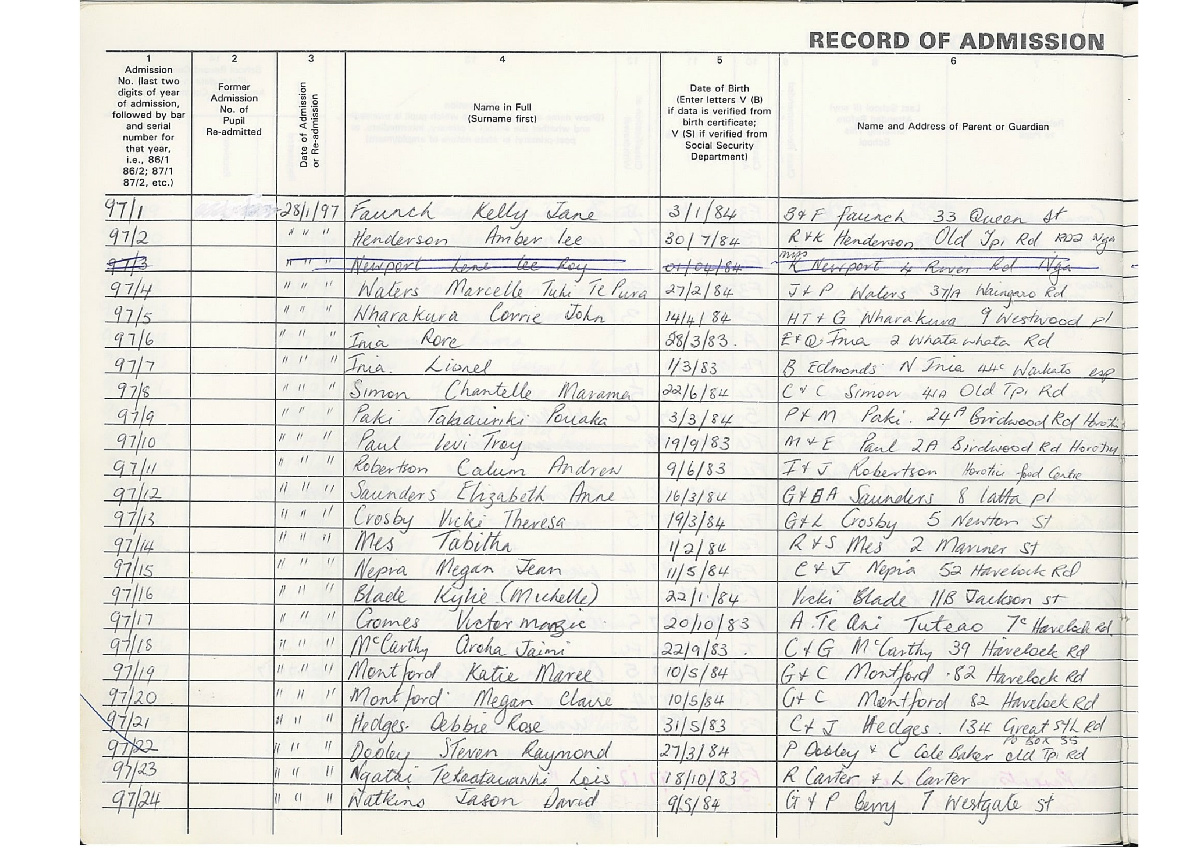 RECORD OF ADMISSION
1 2 3 4 5 6
Admission No. (last two digits of year of admission, followed by bar and serial number for that year, i.e., 86/1 86/2; 87/1 87/2, etc.)
Former Admission No. of Pupil Re-admitted
Date of Admission or Re-admission
Name in Full (Surname first)
Date of Birth (Enter letters V (B) if data is verified from birth certificate; V (S) if verified from Social Security Department)
Name and Address of Parent or Guardian
97/1 28/1/97 Faunch Kelly Jane 3/1/84 B & F Faunch 33 Queen St
97/2 " " " Henderson Amber Lee 30/7/84 R & K Henderson Old Tpi Rd RD2 Nga
97/3 " " " Newport Lee Roy 01/04/84 Mrs K Newport 4 River Rd Nga
97/4 " " " Waters Marcelle Tuhi Te Pura 27/2/84 J & P Waters 37/A Waingaro Rd
97/5 " " " Wharakura Corrie John 14/4/84 HT & G Wharakura 9 Westwood Pl
97/6 " " " Inia Rore 28/3/83. E & Q Inia 2 Whatawhata Rd
97/7 " " " Inia. Lionel 1/3/83 B Edmonds N Inia 44c Waikato esp
97/8 " " " Simon Chantelle Marama 22/6/84 C & C Simon 41A Old Tpi Rd
97/9 " " " Paki Takauriki Pouaka 3/3/84 P & M Paki. 24A Birdwood Rd Horotiu
97/10 " " " Paul Levi Troy 19/9/83 M & E Paul 2A Birdwood Rd Horotiu
97/11 " " " Robertson Calum Andrew 9/6/83 I & J Robertson Horotiu food Centre
97/12 " " " Saunders Elizabeth Anne 16/3/84 G & BA Saunders 8 Latta Pl
97/13 " " " Crosby Vicki Theresa 19/3/84 G & L Crosby 5 Newton St
97/14 " " " Mes Tabitha 1/2/84 R & S Mes 2 Mariner St
97/15 " " " Nepia Megan Jean 11/5/84 C & J Nepia 52 Havelock Rd
97/16 " " " Blade Kylie (Michelle) 22/1/84 Vicki Blade 11B Jackson St
97/17 " " " Gomes Victor 20/10/83 A. Te Ani Tuteao 7c Havelock Rd.
97/18 " " " McCarthy Aroha Jaimi 22/9/83. C & G McCarthy 39 Havelock Rd
97/19 " " " Montford Katie Maree 10/5/84 G & C Montford 82 Havelock Rd
97/20 " " " Montford Megan Claire 10/5/84 G & C Montford 82 Havelock Rd
97/21 " " " Hedges. Debbie Rose 31/5/83 C & J Hedges. 134 Great Sth Rd
97/22 " " " Dooley Steven Raymond 27/3/84 P Dooley & C Cole Baker PO Box 55 Old Tpi Rd
97/23 " " " Ngatai Lois 18/10/83 R Carter & L Carter
97/24 " " " Watkins Jason David 9/5/84 G & P Berry 7 Westgate St